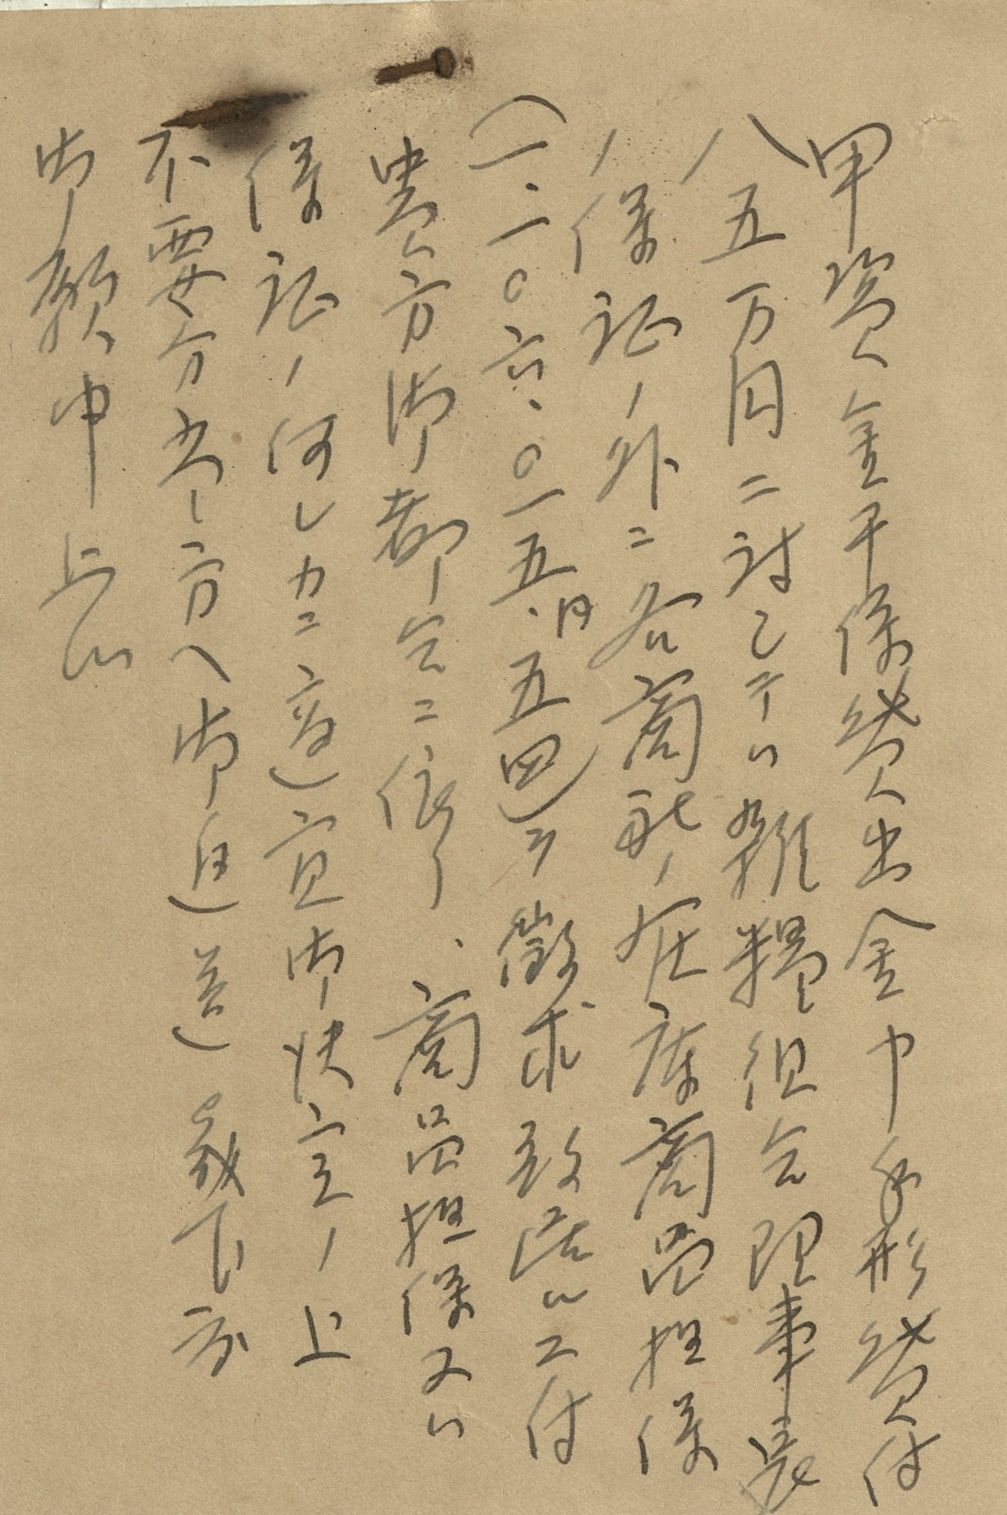 甲資金干係貸出金中手形貸付
八五万円ニ対シテハ雑糧組合理事長
ノ保証ノ外ニ各商社ノ在庫商品担保
(一、一〇六、〇一五円五四)ヲ徴求致居候ニ付
貴方御都合ニ依リ、商品担保又ハ
保証ノ何レカニ適宜御決定ノ上
不要分当方ヘ御返送被下度
御願申上候